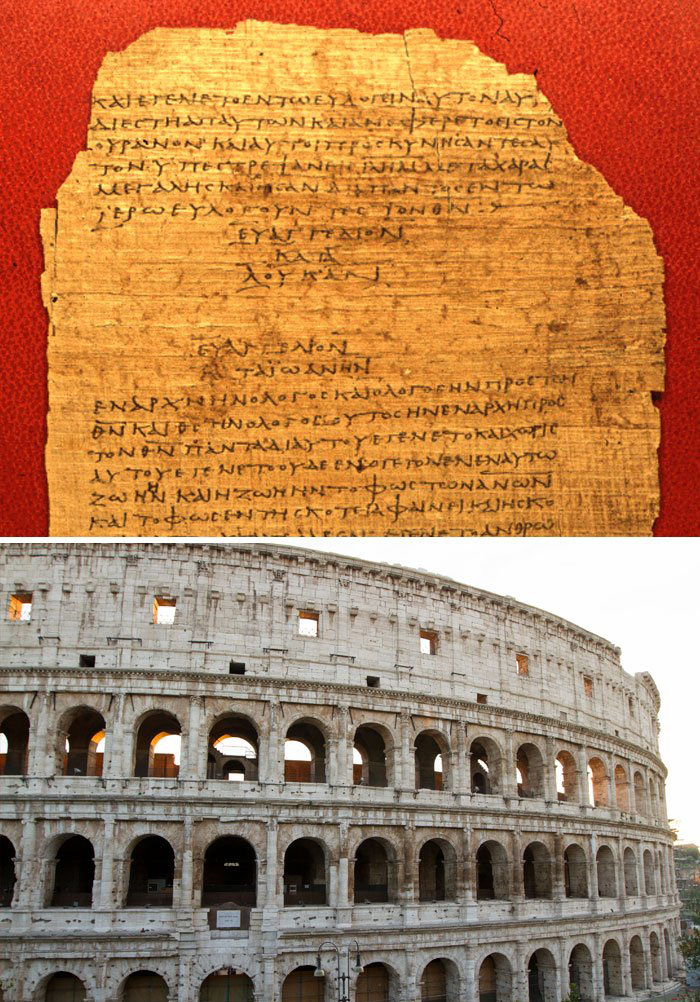 ΚΑΙΕΓΕΝΕΤΟΕΝΤΩΕΥΛΟΓΕΙΝΑΥΤΟΝΑΥ
ΔΙΕϹΤΗΑΠΑΥΤΩΝΚΑΙΑΝΕΦΕΡΕΤΟΕΙϹΤΟΝ
ΟΥΡΑΝΟΝΚΑΙΑΥΤΟΙΠΡΟϹΚΥΝΗϹΑΝΤΕϹΑΥ
ΤΟΝΥΠΕϹΤΡΕΨΑΝΕΙϹΙΛΗΜΜΕΤΑΧΑΡΑϹ
ΜΕΓΑΛΗϹΚΑΙΗϹΑΝΔΙΑΠΑΝΤΟϹΕΝΤΩ
ΙΕΡΩΕΥΛΟΓΟΥΝΤΕϹΤΟΝΘΝ
ΕΥΑΓΓΕΛΙΟΝ
ΚΑΤΑ
ΛΟΥΚΑΝ
ΕΥΑΓΓΕΛΙΟΝ
ΚΑΤΑΪΩΑΝΗΝ
ΕΝΑΡΧΗΗΝΟΛΟΓΟϹΚΑΙΟΛΟΓΟϹΗΝΠΡΟϹΤΟΝ
ΘΝΚΑΙΘϹΗΝΟΛΟΓΟϹΟΥΤΟϹΗΝΕΝΑΡΧΗΠΡΟϹ
ΤΟΝΘΝΠΑΝΤΑΔΙΑΥΤΟΥΕΓΕΝΕΤΟΚΑΙΧΩΡΙϹ
ΑΥΤΟΥΕΓΕΝΕΤΟΟΥΔΕΕΝΟΓΕΓΟΝΕΝΕΝΑΥΤΩ
ΖΩΗΗΝΚΑΙΗΖΩΗΗΝΤΟΦΩϹΤΩΝΑΝΩΝ
ΚΑΙΤΟΦΩϹΕΝΤΗϹΚΟΤΕΙΑΦΑΙΝΕΙΚΑΙΗϹΚΟ
ΕΓΕΝΕΤΟΑΝΘΡΩ